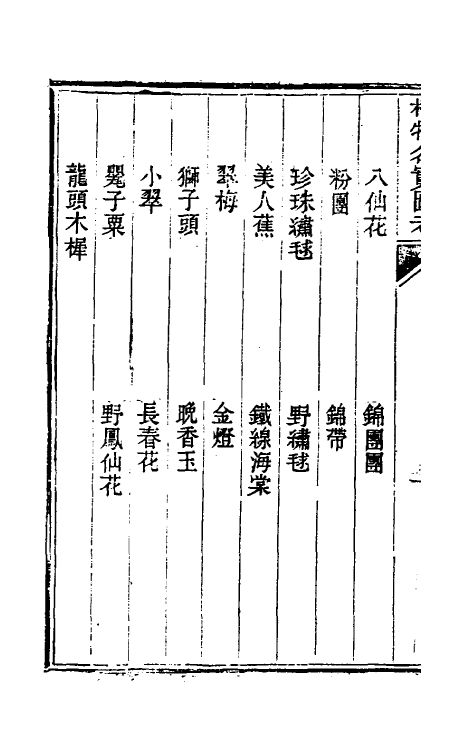 植物名實圖考
八仙花 錦團團
粉團 錦帶
珍珠繡毬 野繡毬
美人蕉 鐵線海棠
翠梅 金燈
獅子頭 晚香玉
小翠 長春花
甖子粟 野鳳仙花
龍頭木樨